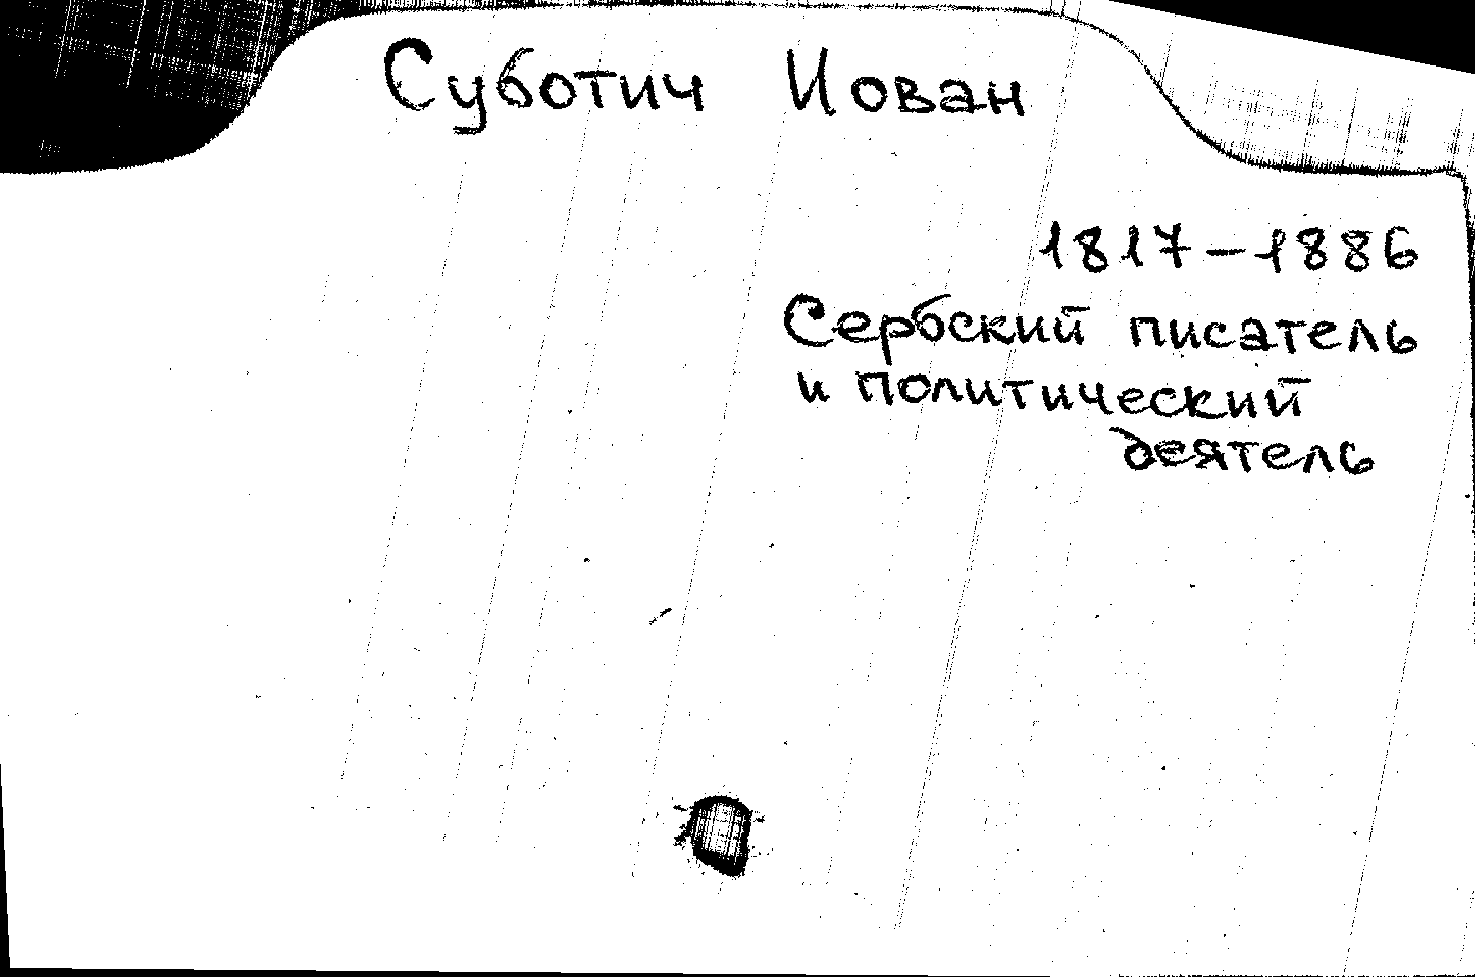 Суботич Иован
1817-1886
Сербский писатель
и политический
деятель